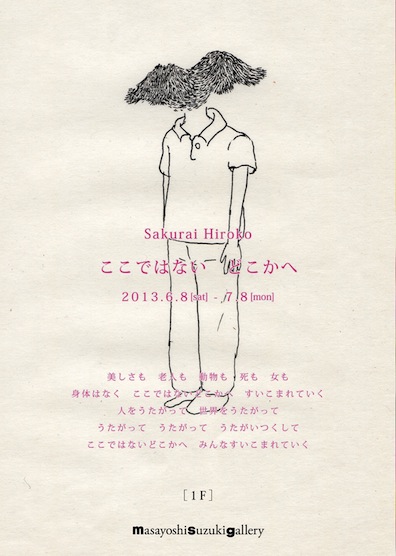 Sakurai Hiroko
ここではない　どこかへ
2013.6.8[sat] - 7.8[mon]
美しさも　老人も　動物も　死も　女も
身体はなく　ここではないどこかへ　すいこまれていく
人をうたがって　世界をうたがって
うたがって　うたがって　うたがいつくして
ここではないどこかへ　みんなすいこまれていく
[1F]
masayoshiSuzukigallery